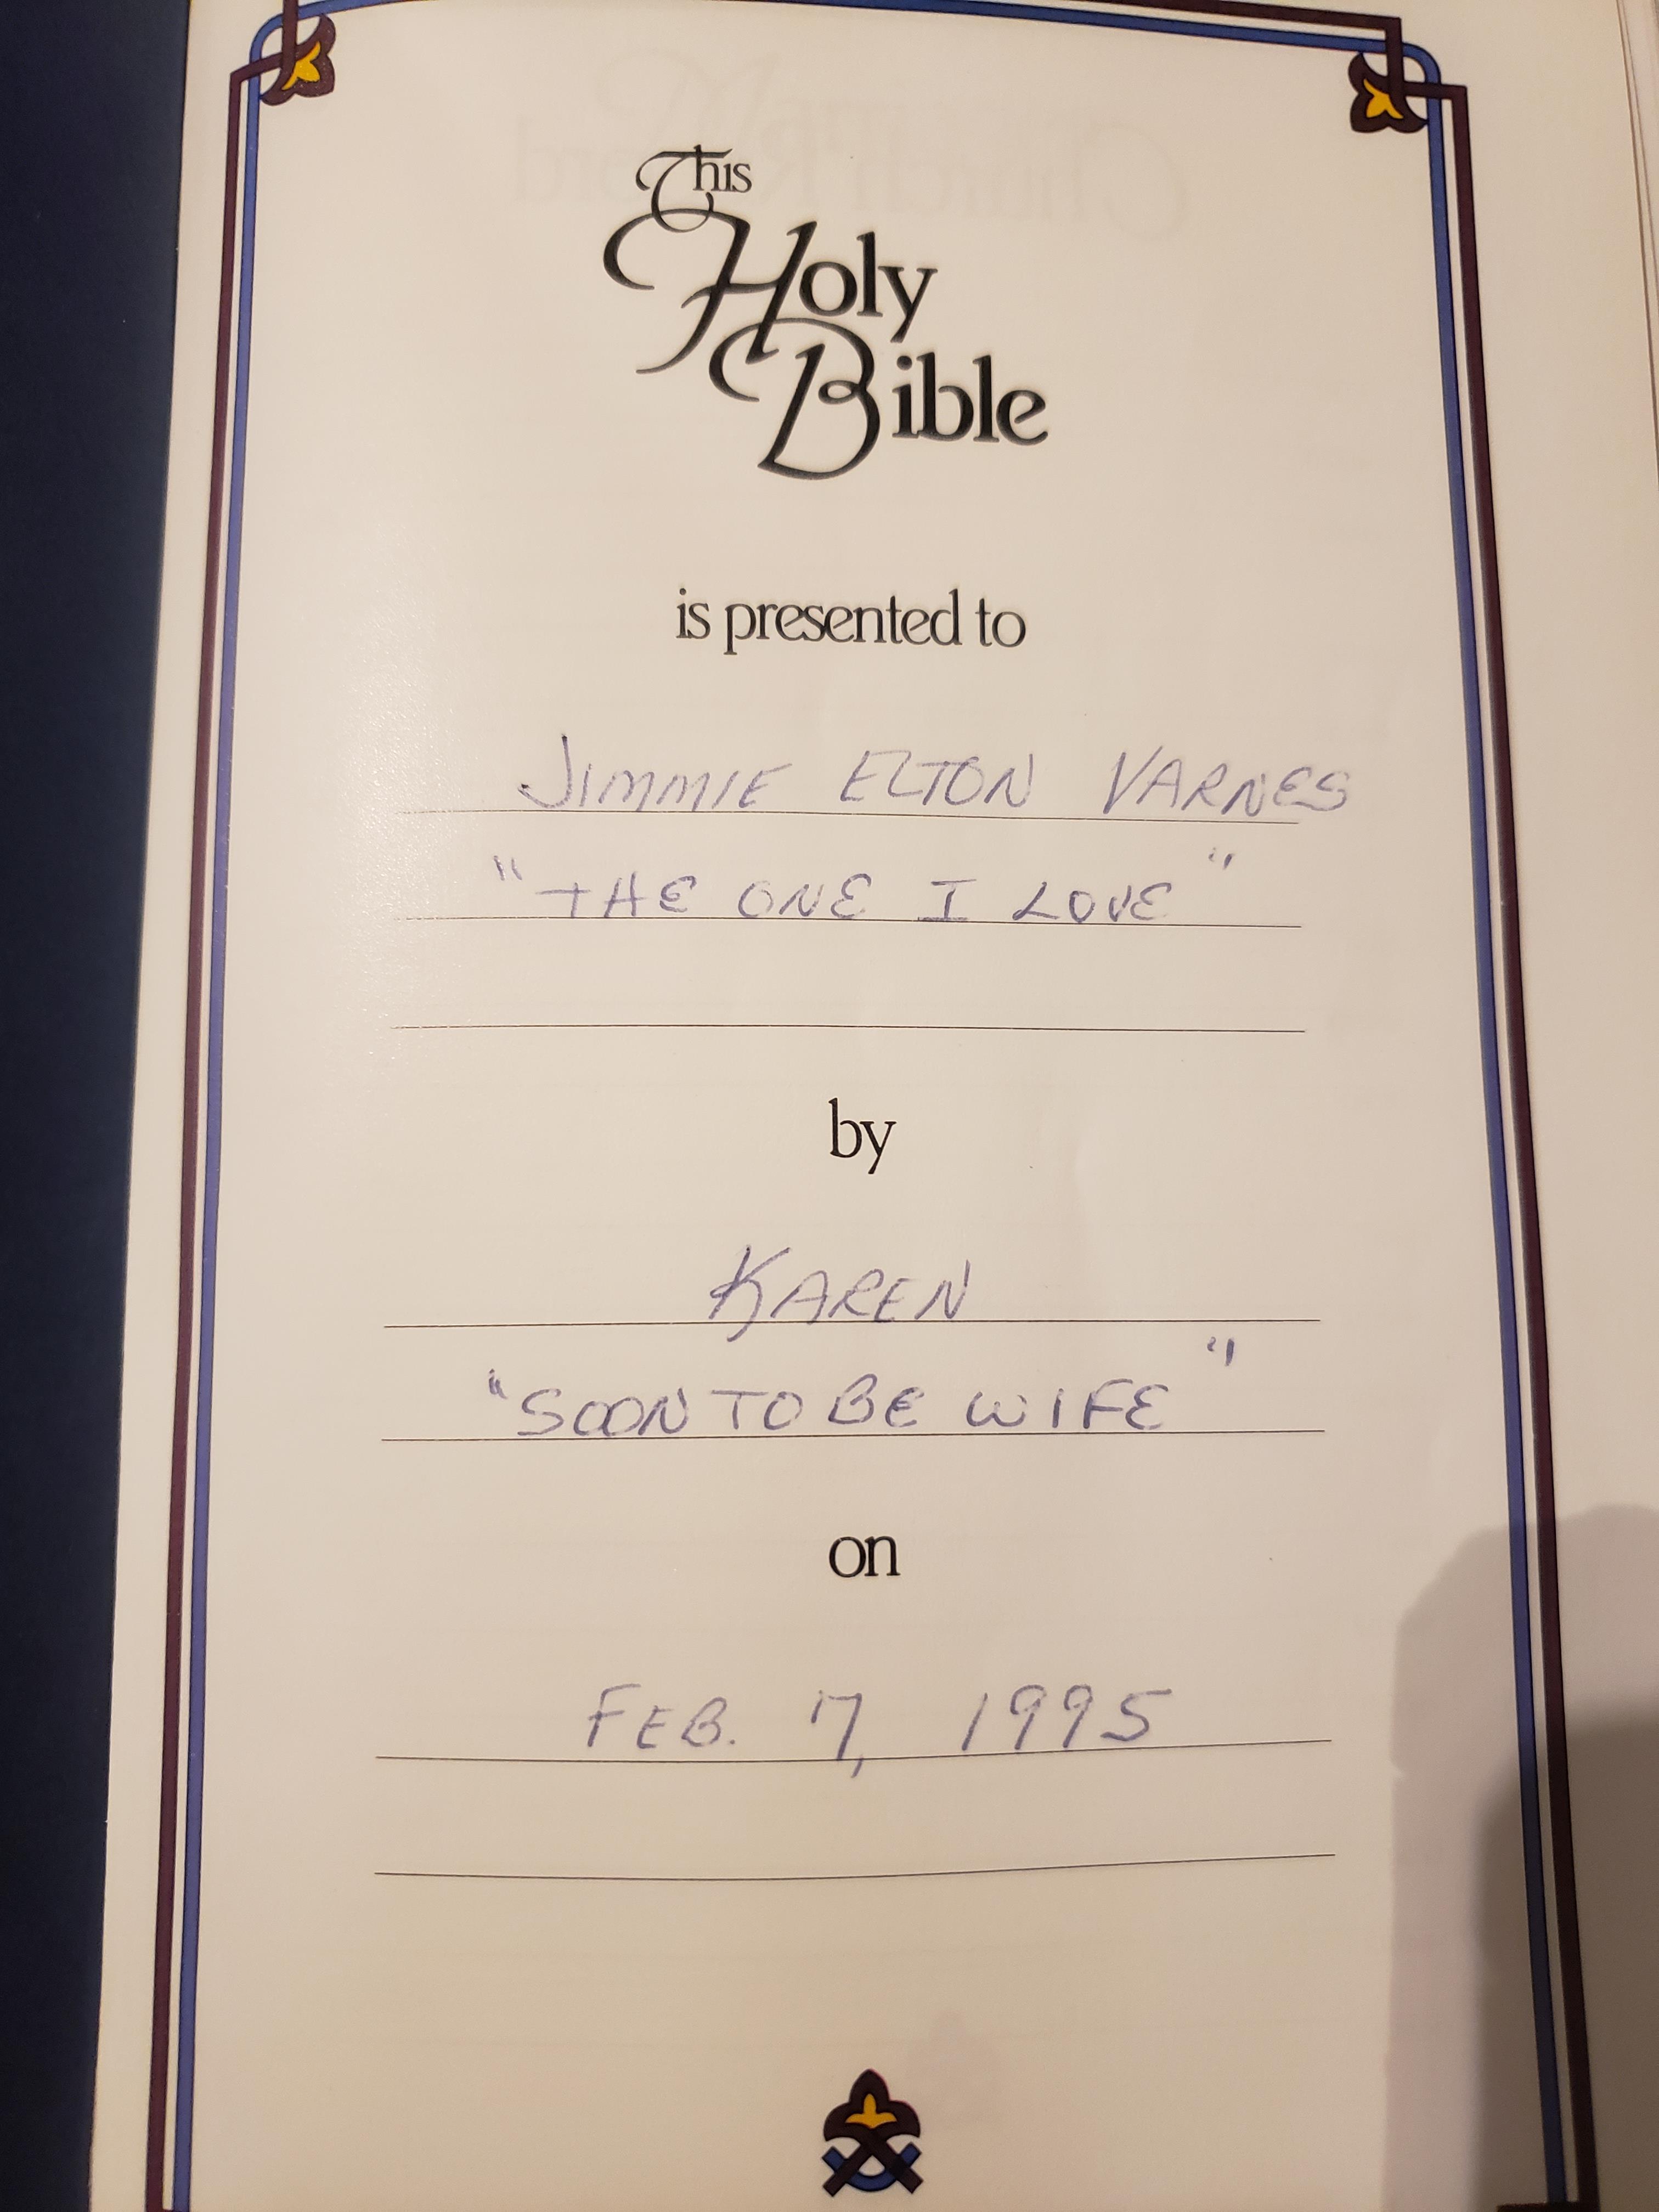 This
Holy
Bible
is presented to
JIMMIE ELTON VARNES
"THE ONE I LOVE"
by
KAREN
"SOON TO BE WIFE"
on
FEB. 7, 1995